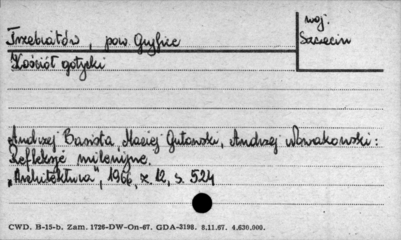 Trzebiatów, pow. Gryfice
woj. Szczecin
Kościół gotycki
Andrzej Basista, Maciej Gutowski, Andrzej Nowakowski:
Refleksje milenijne.
"Architektura", 1966, z. 12, s. 524
CWD. B-15-b. Zam. 1726-DW-On-67. GDA-2198. 8.11.67. 4.630.000.